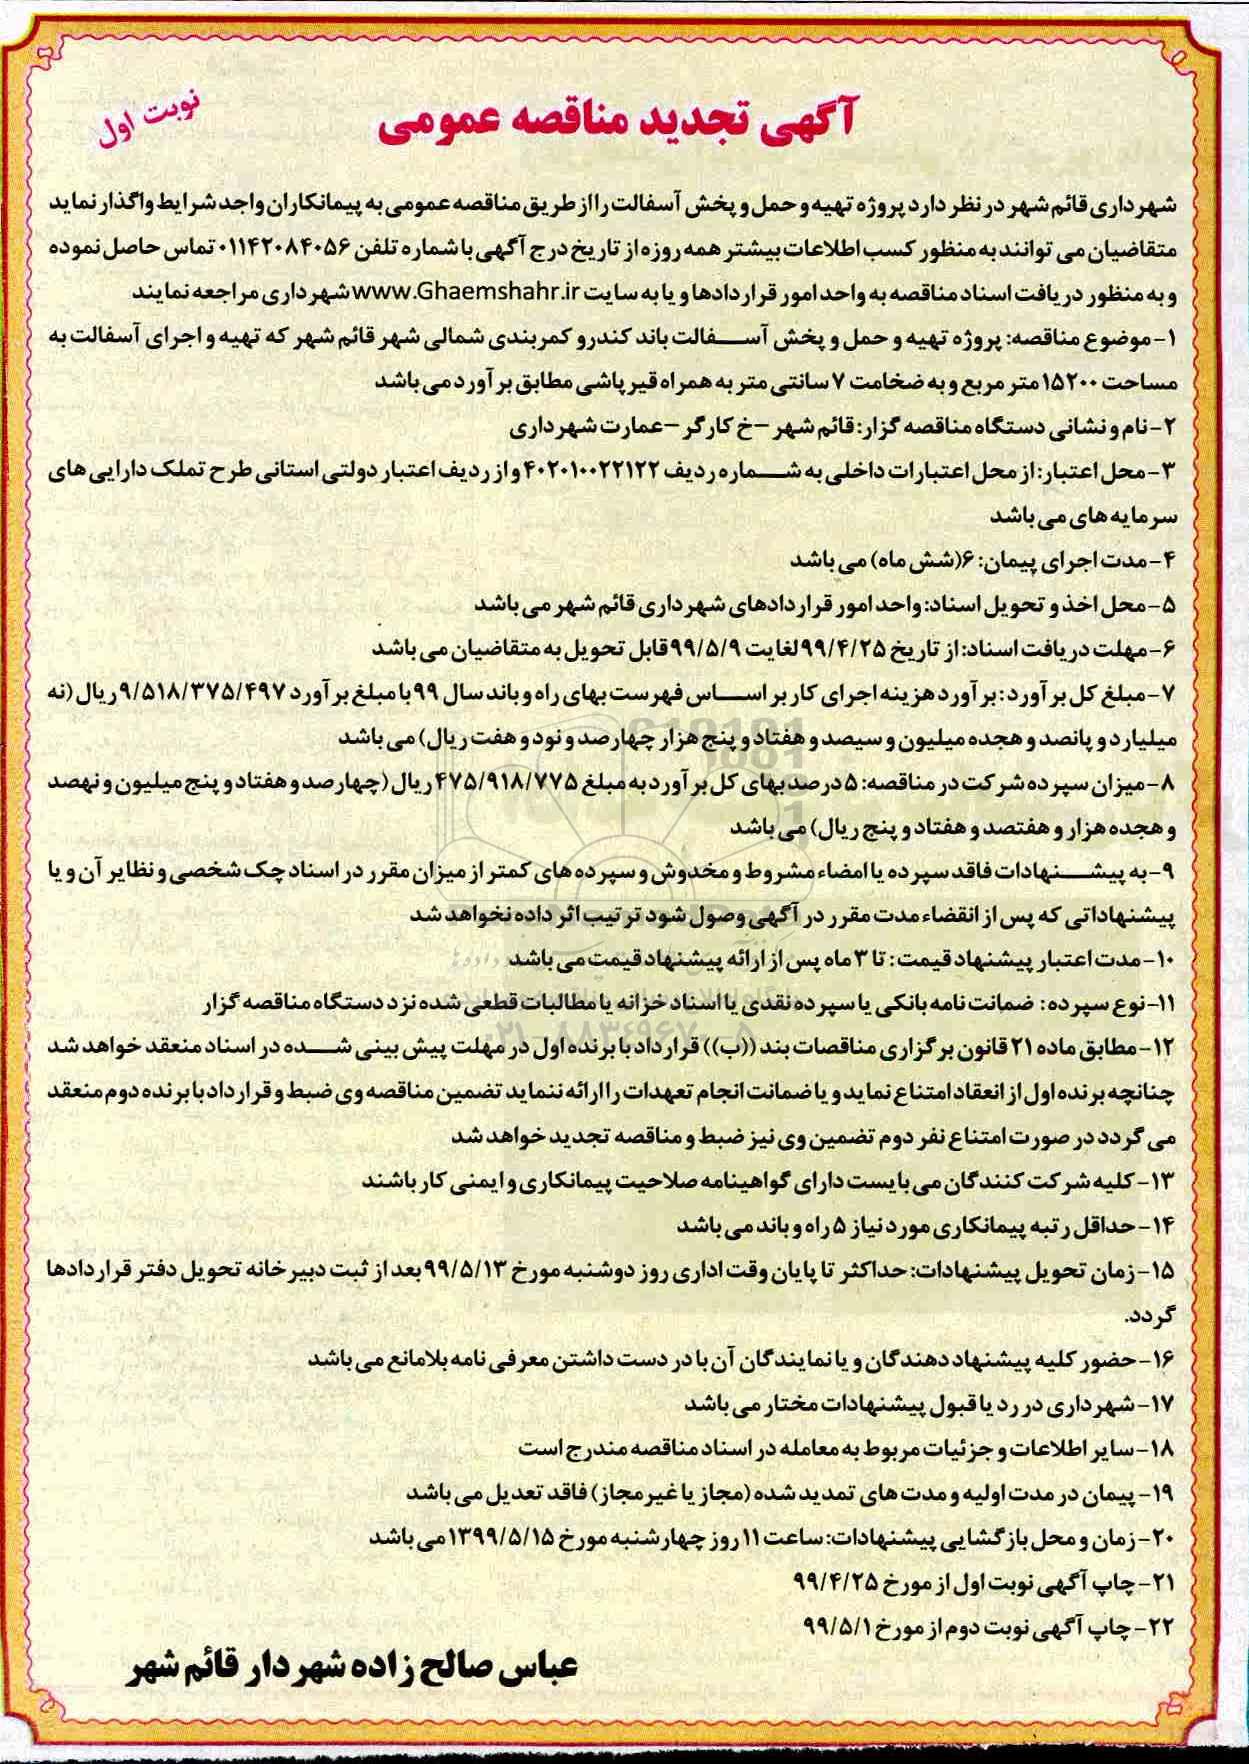 آگهی تجدید مناقصه عمومی
نوبت اول
شهرداری قائم شهر در نظر دارد پروژه تهیه و حمل و پخش آسفالت را از طریق مناقصه عمومی به پیمانکاران واجد شرایط واگذار نماید
متقاضیان می توانند به منظور کسب اطلاعات بیشتر همه روزه از تاریخ درج آگهی با شماره تلفن ۰۱۱۴۲۰۸۴۰۵۶ تماس حاصل نموده
و به منظور دریافت اسناد مناقصه به واحد امور قراردادها و یا به سایت www.Ghaemshahr.ir شهرداری مراجعه نمایند
۱- موضوع مناقصه: پروژه تهیه و حمل و پخش آسفالت باند کندرو کمربندی شمالی شهر قائم شهر که تهیه و اجرای آسفالت به
مساحت ۱۵۲۰۰ متر مربع و به ضخامت ۷ سانتی متر به همراه قیرپاشی مطابق برآورد می باشد
۲- نام و نشانی دستگاه مناقصه گزار: قائم شهر – خ کارگر – عمارت شهرداری
۳- محل اعتبار: از محل اعتبارات داخلی به شماره ردیف ۴۰۲۰۱۰۰۲۲۱۲۲ و از ردیف اعتبار دولتی استانی طرح تملک دارایی های
سرمایه های می باشد
۴- مدت اجرای پیمان: ۶(شش ماه) می باشد
۵- محل اخذ و تحویل اسناد: واحد امور قراردادهای شهرداری قائم شهر می باشد
۶- مهلت دریافت اسناد: از تاریخ ۹۹/۴/۲۵ لغایت ۹۹/۵/۹ قابل تحویل به متقاضیان می باشد
۷- مبلغ کل برآورد: برآورد هزینه اجرای کار بر اساس فهرست بهای راه و باند سال ۹۹ با مبلغ برآورد ۹/۵۱۸/۳۷۵/۴۹۷ ریال (نه
میلیارد و پانصد و هجده میلیون و سیصد و هفتاد و پنج هزار چهارصد و نود و هفت ریال) می باشد
۸- میزان سپرده شرکت در مناقصه: ۵ درصد بهای کل برآورد به مبلغ ۴۷۵/۹۱۸/۷۷۵ ریال (چهارصد و هفتاد و پنج میلیون و نهصد
و هجده هزار و هفتصد و هفتاد و پنج ریال) می باشد
۹- به پیشنهادات فاقد سپرده یا امضاء مشروط و مخدوش و سپرده های کمتر از میزان مقرر در اسناد چک شخصی و نظایر آن و یا
پیشنهاداتی که پس از انقضاء مدت مقرر در آگهی وصول شود ترتیب اثر داده نخواهد شد
۱۰- مدت اعتبار پیشنهاد قیمت: تا ۳ ماه پس از ارائه پیشنهاد قیمت می باشد
۱۱- نوع سپرده: ضمانت نامه بانکی یا سپرده نقدی یا اسناد خزانه یا مطالبات قطعی شده نزد دستگاه مناقصه گزار
۱۲- مطابق ماده ۲۱ قانون برگزاری مناقصات بند ((ب)) قرارداد با برنده اول در مهلت پیش بینی شده در اسناد منعقد خواهد شد
چنانچه برنده اول از انعقاد امتناع نماید و یا ضمانت انجام تعهدات را ارائه ننماید تضمین مناقصه وی ضبط و قرارداد با برنده دوم منعقد
می گردد در صورت امتناع نفر دوم تضمین وی نیز ضبط و مناقصه تجدید خواهد شد
۱۳- کلیه شرکت کنندگان می بایست دارای گواهینامه صلاحیت پیمانکاری و ایمنی کار باشند
۱۴- حداقل رتبه پیمانکاری مورد نیاز ۵ راه و باند می باشد
۱۵- زمان تحویل پیشنهادات: حداکثر تا پایان وقت اداری روز دوشنبه مورخ ۹۹/۵/۱۳ بعد از ثبت دبیرخانه تحویل دفتر قراردادها
گردد.
۱۶- حضور کلیه پیشنهاد دهندگان و یا نمایندگان آن با در دست داشتن معرفی نامه بلامانع می باشد
۱۷- شهرداری در رد یا قبول پیشنهادات مختار می باشد
۱۸- سایر اطلاعات و جزئیات مربوط به معامله در اسناد مناقصه مندرج است
۱۹- پیمان در مدت اولیه و مدت های تمدید شده (مجاز یا غیر مجاز) فاقد تعدیل می باشد
۲۰- زمان و محل بازگشایی پیشنهادات: ساعت ۱۱ روز چهارشنبه مورخ ۱۳۹۹/۵/۱۵ می باشد
۲۱- چاپ آگهی نوبت اول از مورخ ۹۹/۴/۲۵
۲۲- چاپ آگهی نوبت دوم از مورخ ۹۹/۵/۱
عباس صالح زاده شهردار قائم شهر